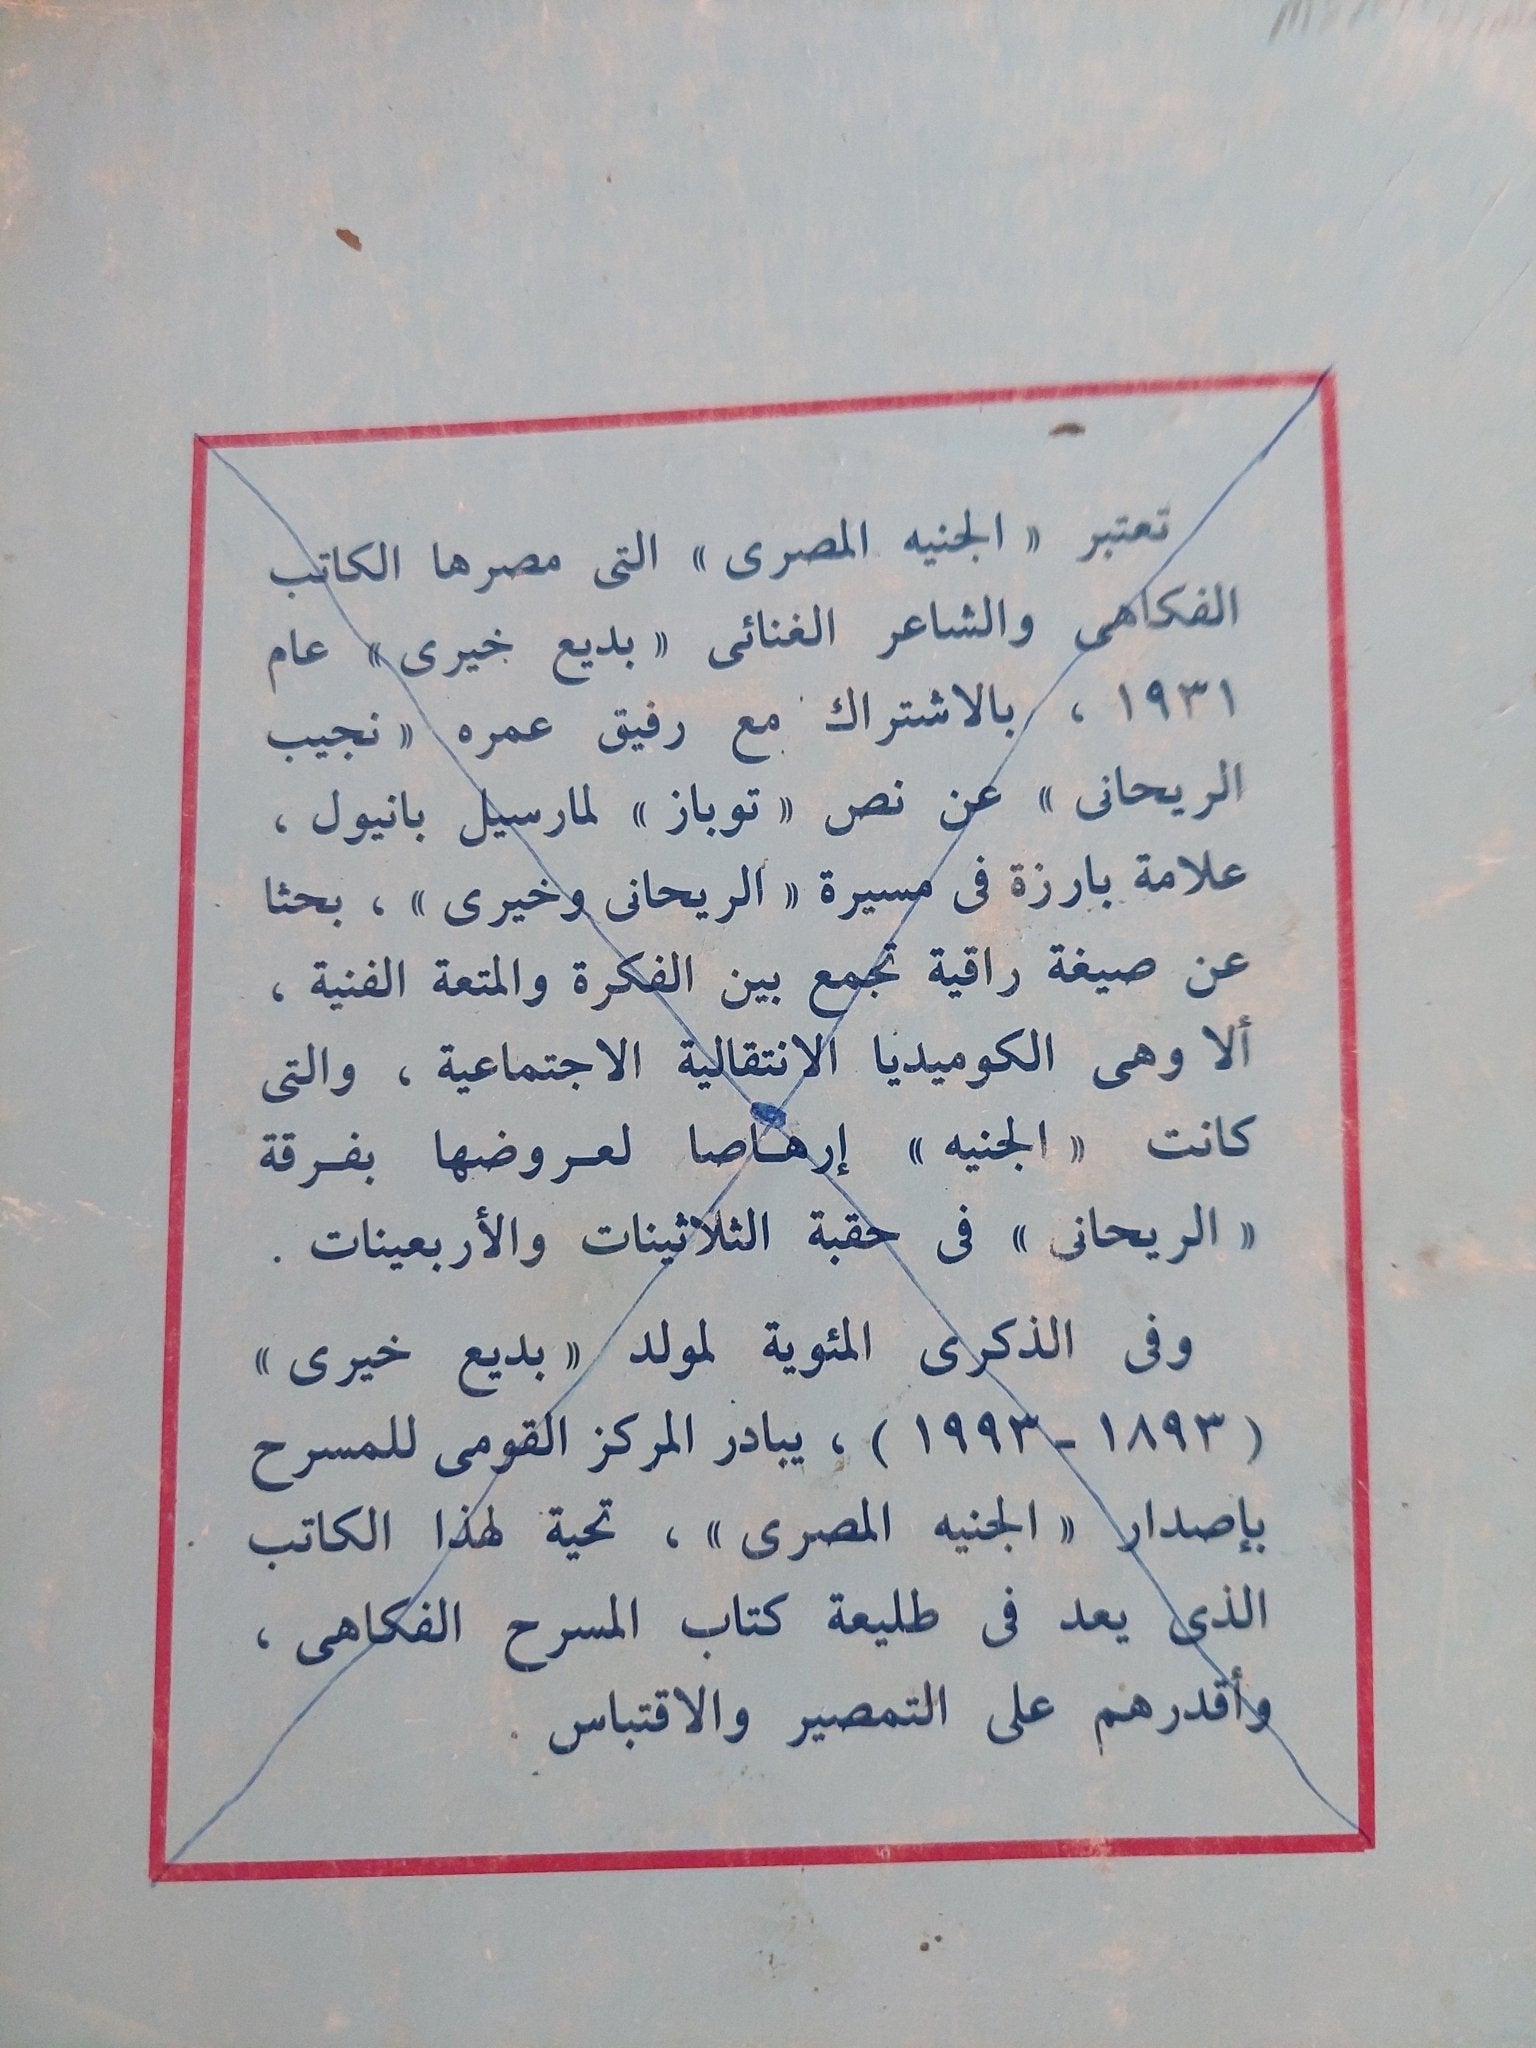 تعتبر « الجنيه المصرى » التى مصرها الكاتب
الفكاهى والشاعر الغنائى « بديع خيرى » عام
١٩٣١ ، بالاشتراك مع رفيق عمره « نجيب
الريحانى » عن نص « توباز » لمارسيل بانيول ،
علامة بارزة فى مسيرة « الريحانى وخيرى » ، بحثا
عن صيغة راقية تجمع بين الفكرة والمتعة الفنية ،
ألا وهى الكوميديا الانتقالية الاجتماعية ، والتى
كانت « الجنيه » إرهاصا لعروضها بفرقة
« الريحانى » فى حقبة الثلاثينات والأربعينات .
وفى الذكرى المئوية لمولد « بديع خيرى »
( ١٨٩٣ - ١٩٩٣ ) ، يبادر المركز القومى للمسرح
بإصدار « الجنيه المصرى » ، تحية لهذا الكاتب
الذى يعد فى طليعة كتاب المسرح الفكاهى ،
وأقدرهم على التمصير والاقتباس .